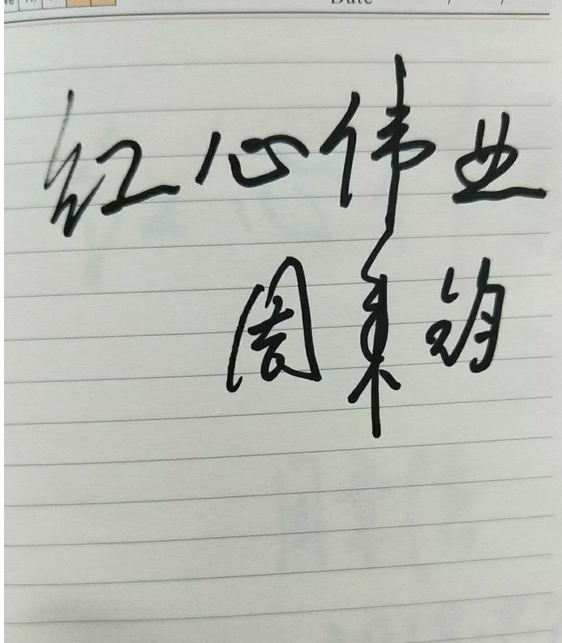 Date
红心伟业
周秉钧